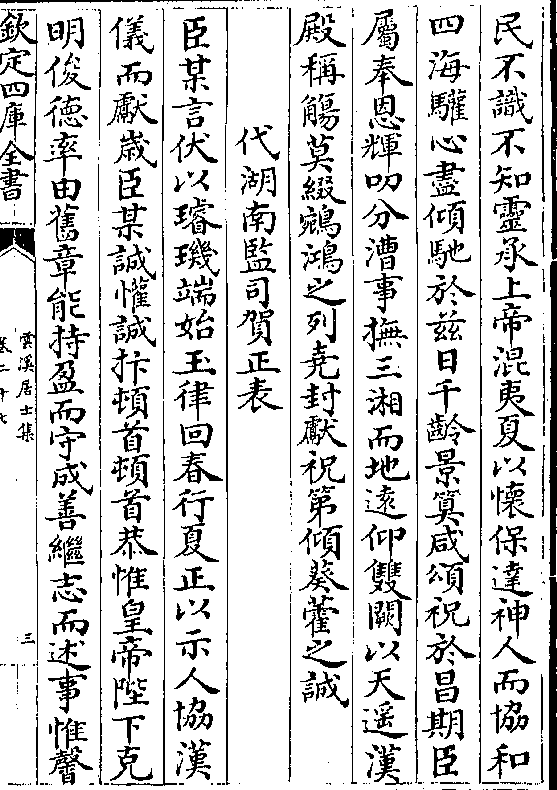 民不識不知靈承上帝混夷夏以懷保達神人而協和
四海驩心盡傾馳於兹日千齡景算咸頌祝於昌期臣
屬奉恩輝叨分漕事撫三湘而地逺仰雙闕以天遥漢
殿稱觴莫綴鵷鴻之列堯封獻祝第傾葵藿之誠
代湖南監司賀正表
臣某言伏以璿璣端始玉律回春行夏正以示人協漢
儀而獻嵗臣某誠懽誠抃頓首頓首恭惟皇帝陛下克
明俊德率由舊章能持盈而守成善繼志而述事惟馨
欽定四庫全書
雲溪居士集
卷二十七
三